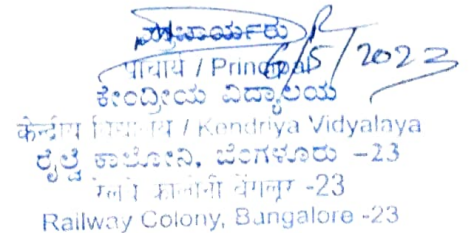 ಪ್ರಾಚಾರ್ಯರು
6/5/2023
प्राचार्य / Principal
ಕೇಂದ್ರೀಯ ವಿದ್ಯಾಲಯ
केन्द्रीय विद्यालय / Kendriya Vidyalaya
ರೈಲ್ವೆ ಕಾಲೋನಿ, ಬೆಂಗಳೂರು -23
रेलवे कालोनी बेंगलूर -23
Railway Colony, Bangalore -23